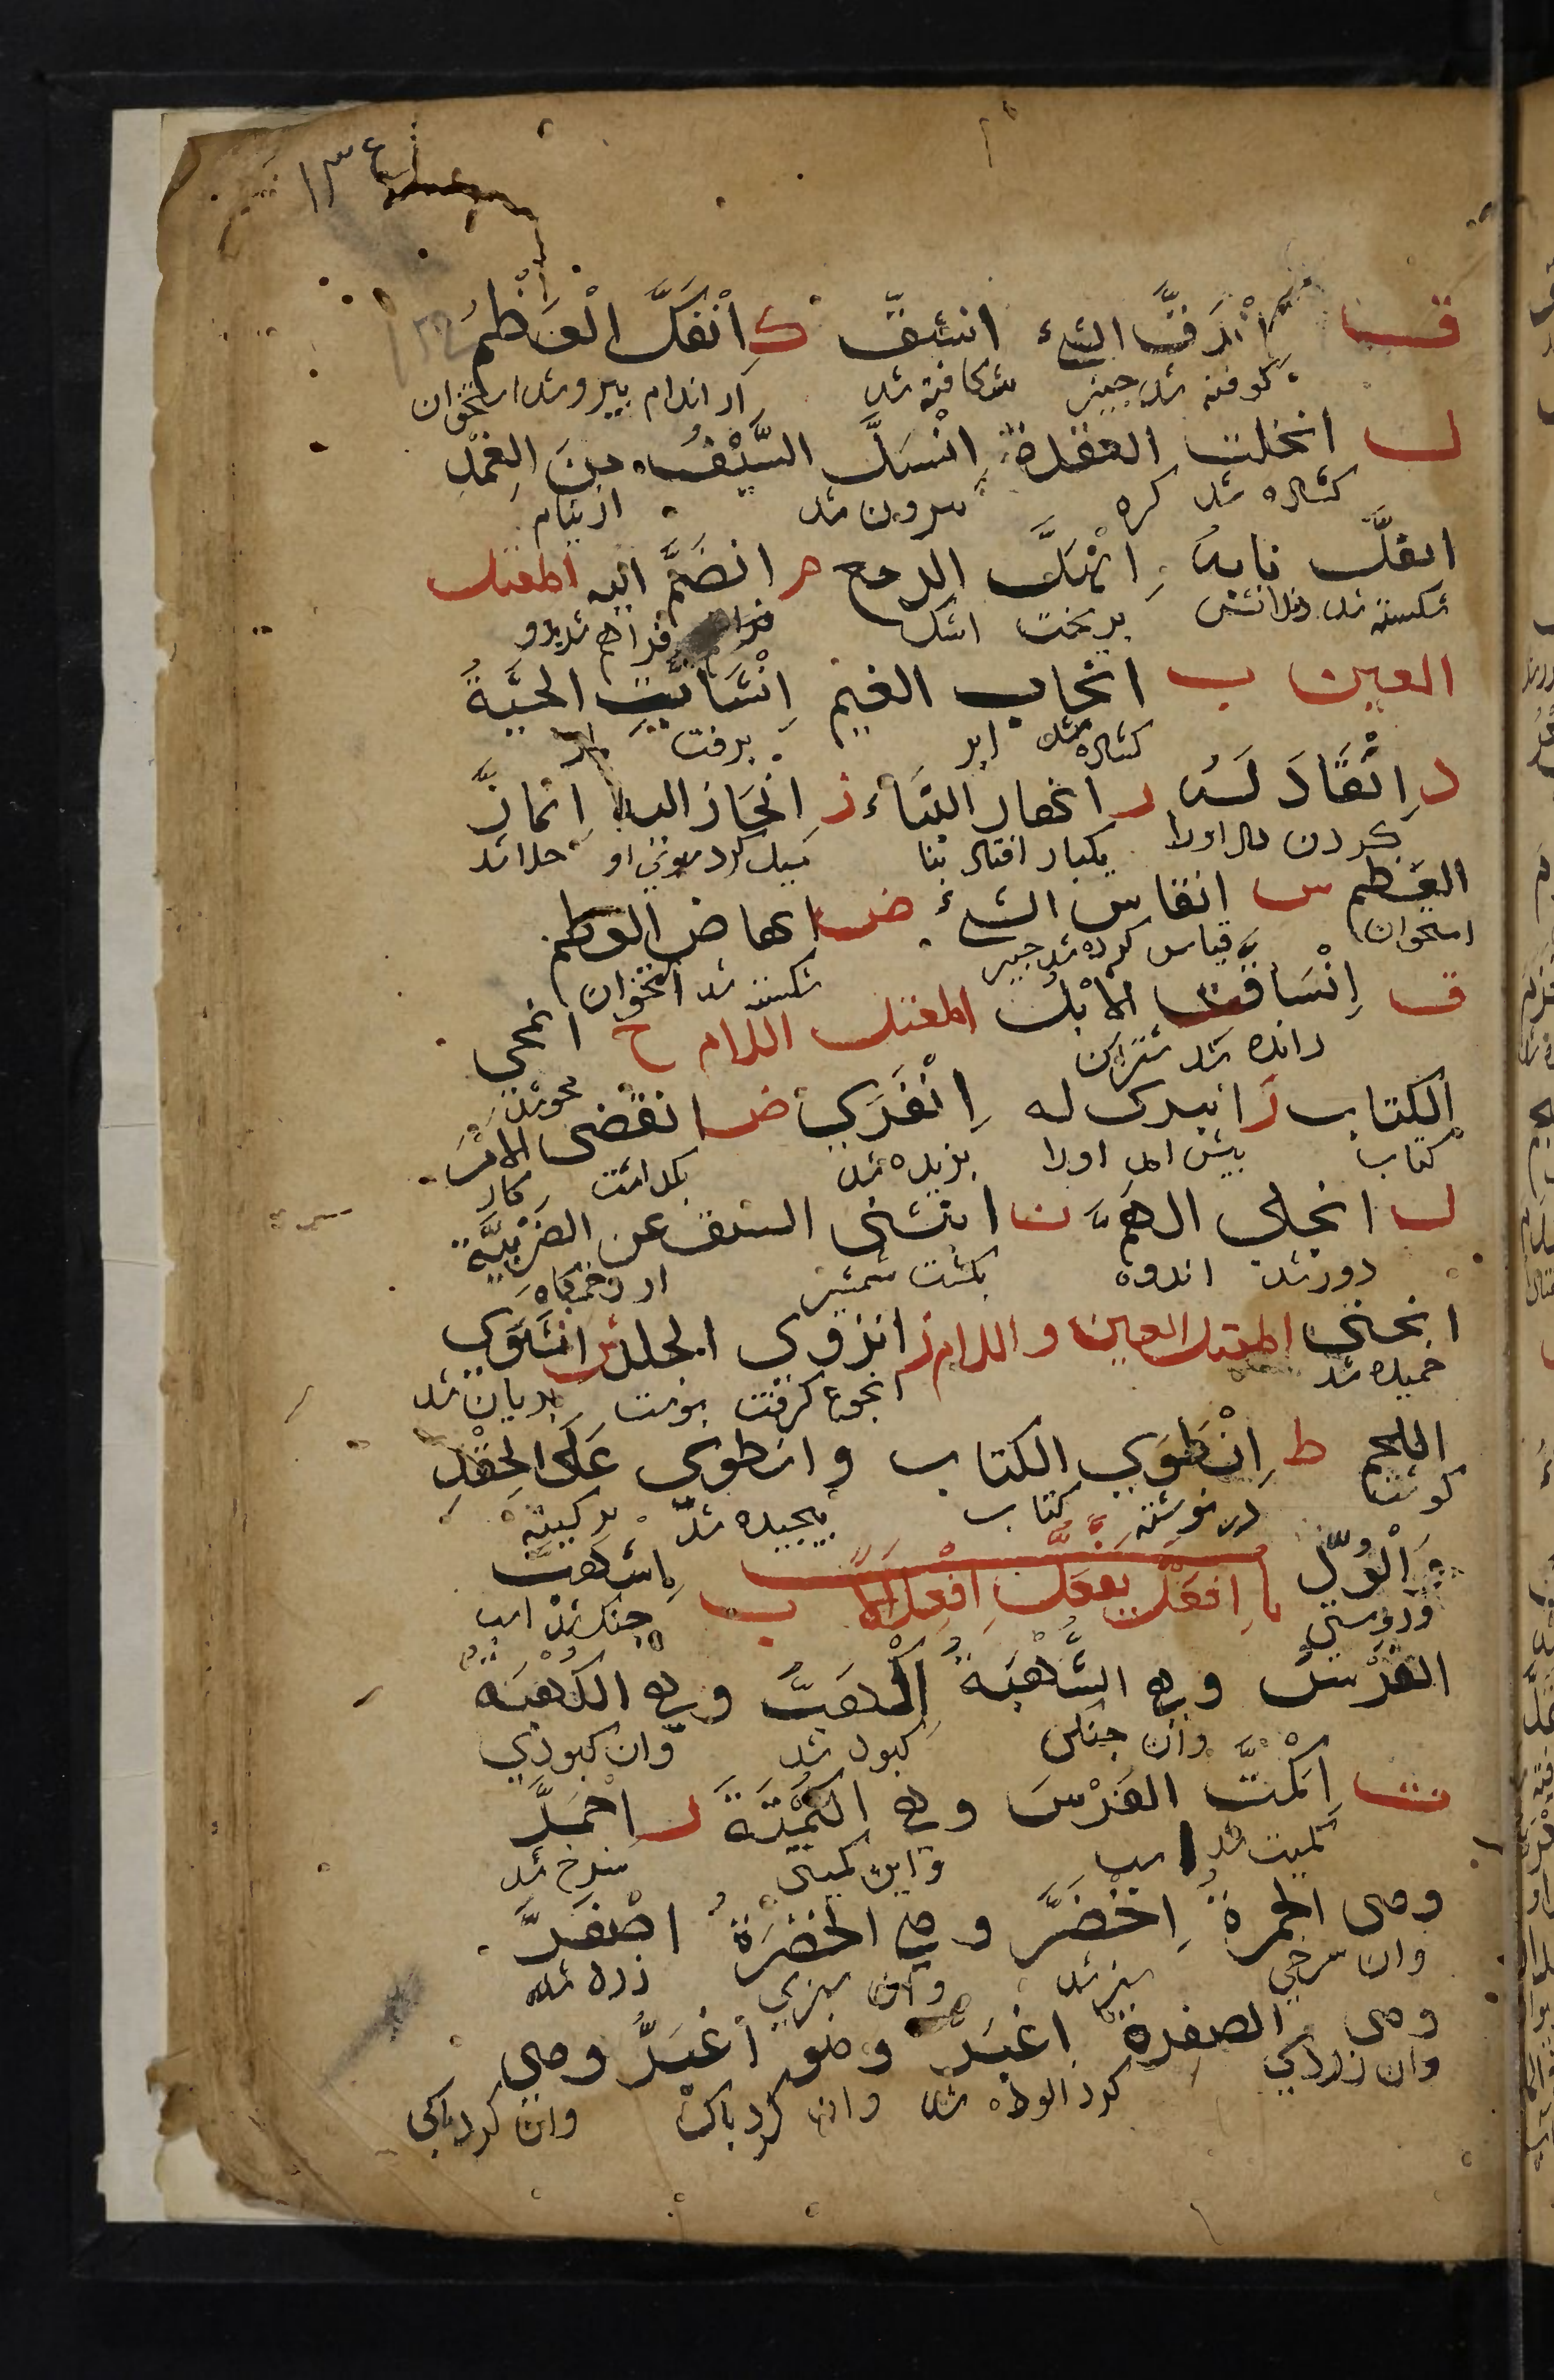 ١٣٤
ق اندقّ الشيء انشقّ ك اِنْفَكَّ الْعَظْمُ
كوفته شد چيز شكافته شد از اندام بيرو شد استخوان
ل انحلت العقدة اِنْسَلَّ السَّيْفُ مِنَ الغِمْدِ
كشاده شد كره بيرون شد از نيام
انفلّ نابهُ اِنْهَلَّ الدمع م انضَمَّ اليه المعتل
شكسته شد دندانش بريخت اشك فراهم شد بدو
العين ب انجاب الغيم اِنْسَابَتِ الحَيَّةُ
كشاده شد ابر برفت مار
د اِنْقَادَ لَهُ ر انهار البناء ز اِنْحَازَ اليه اِنمازَ
كردن داد اورا يكبار افتاد بنا ميل كرد سوى او جدا شد
العَظم س انقاس الشيء ض انهاض العظم
استخوان قياس كرده شد چيز شكسته شد استخوان
ق اِنْسَاقت الاِبْلُ المعتل اللام ح انمحي
رانده شد شتران محو شد
الكتاب ر انبرى له اِنْفَرَي ض انقضى الامْرُ
كتاب پيش امد اورا بريده شد بكذاشت كار
ل انجلى الهَمُّ ن انثنى السيف عن الضَرْبِيَّة
دور شد اندوه بكشت شمشير از زخمگاه
انحنى المعتل العين و اللام ز انزوى الجلد ش انشَوَي
خميده شد انجوغ كرفت پوست بريان شد
اللحم ط اِنْطَوَي الكتاب و انطوى عَلَى الحِقْدِ
كوشت در نوشته كتاب پيچيده شد بر كينه
وَ الْوُدِّ با اِفعَلّ يفعَلّ اِفْعِلَالاً ب اِشهَبَّ
و دوستي چنك شد اسب
الفَرَسُ و هي الشُّهْبَةُ اِكْهَبَّ و هي الكُهْبَة
و ان چنكى كبود شد و ان كبودي
ت اِكْمَتَّ الفَرَسُ و هي الكُمْتَةُ ر اِحْمَرَّ
كميت شد اسب و اين كميتى سرخ شد
وهى الحمرة اِخْضَرَّ و هي الخضرَةُ اصْفَرَّ
و ان سرخي سبز شد و ان سبزي زرد شد
وهى الصفرة اغبَرَّ و هو اَغبَرُ وهي
و ان زردكي كرد الوده شد و ان كرد ناك و ان كرد ناكى